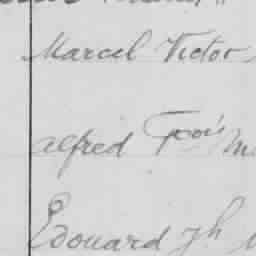 Marcel Victor
alfred Fçois
Edouard Jh